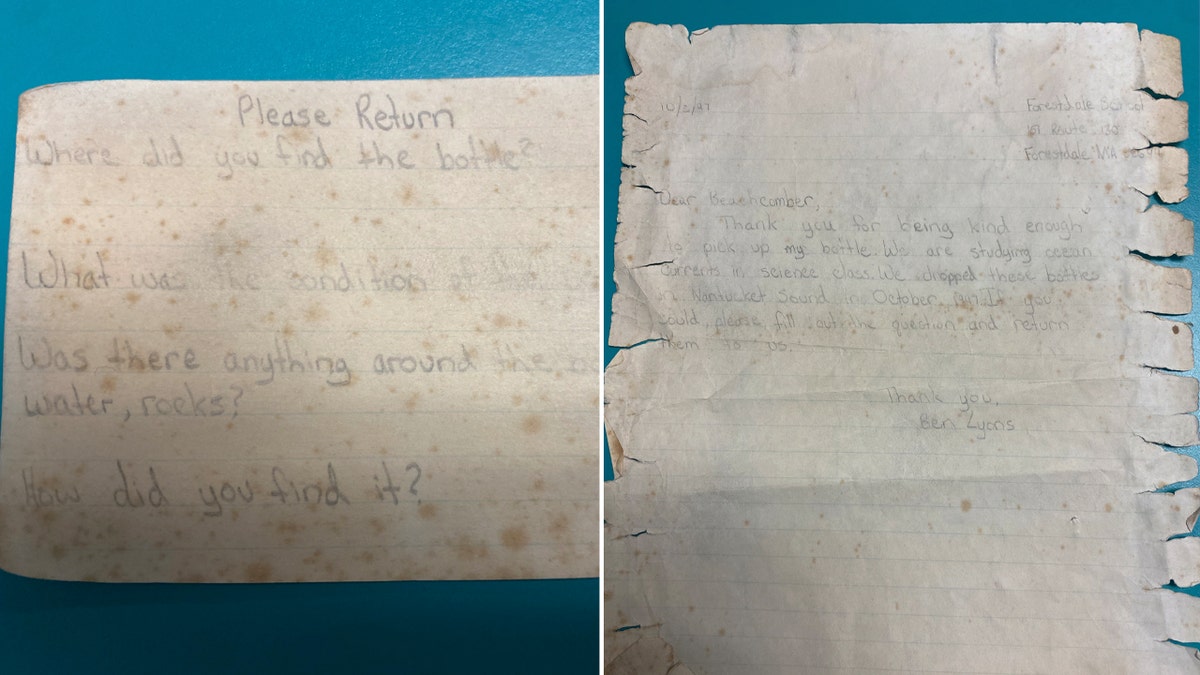 Please Return
Where did you find the bottle?
What was the condition
Was there anything around the
water, rocks?
How did you find it?
10/2/97
Forestdale School
Route 130
Forestdale MA
Dear Beachcomber,
Thank you for being kind enough
to pick up my bottle. We are studying ocean
currents in science class. We dropped these bottles
in Nantucket Sound in October, If you
could, please fill out the question and return
them to us.
Thank you,
Ben Lyons